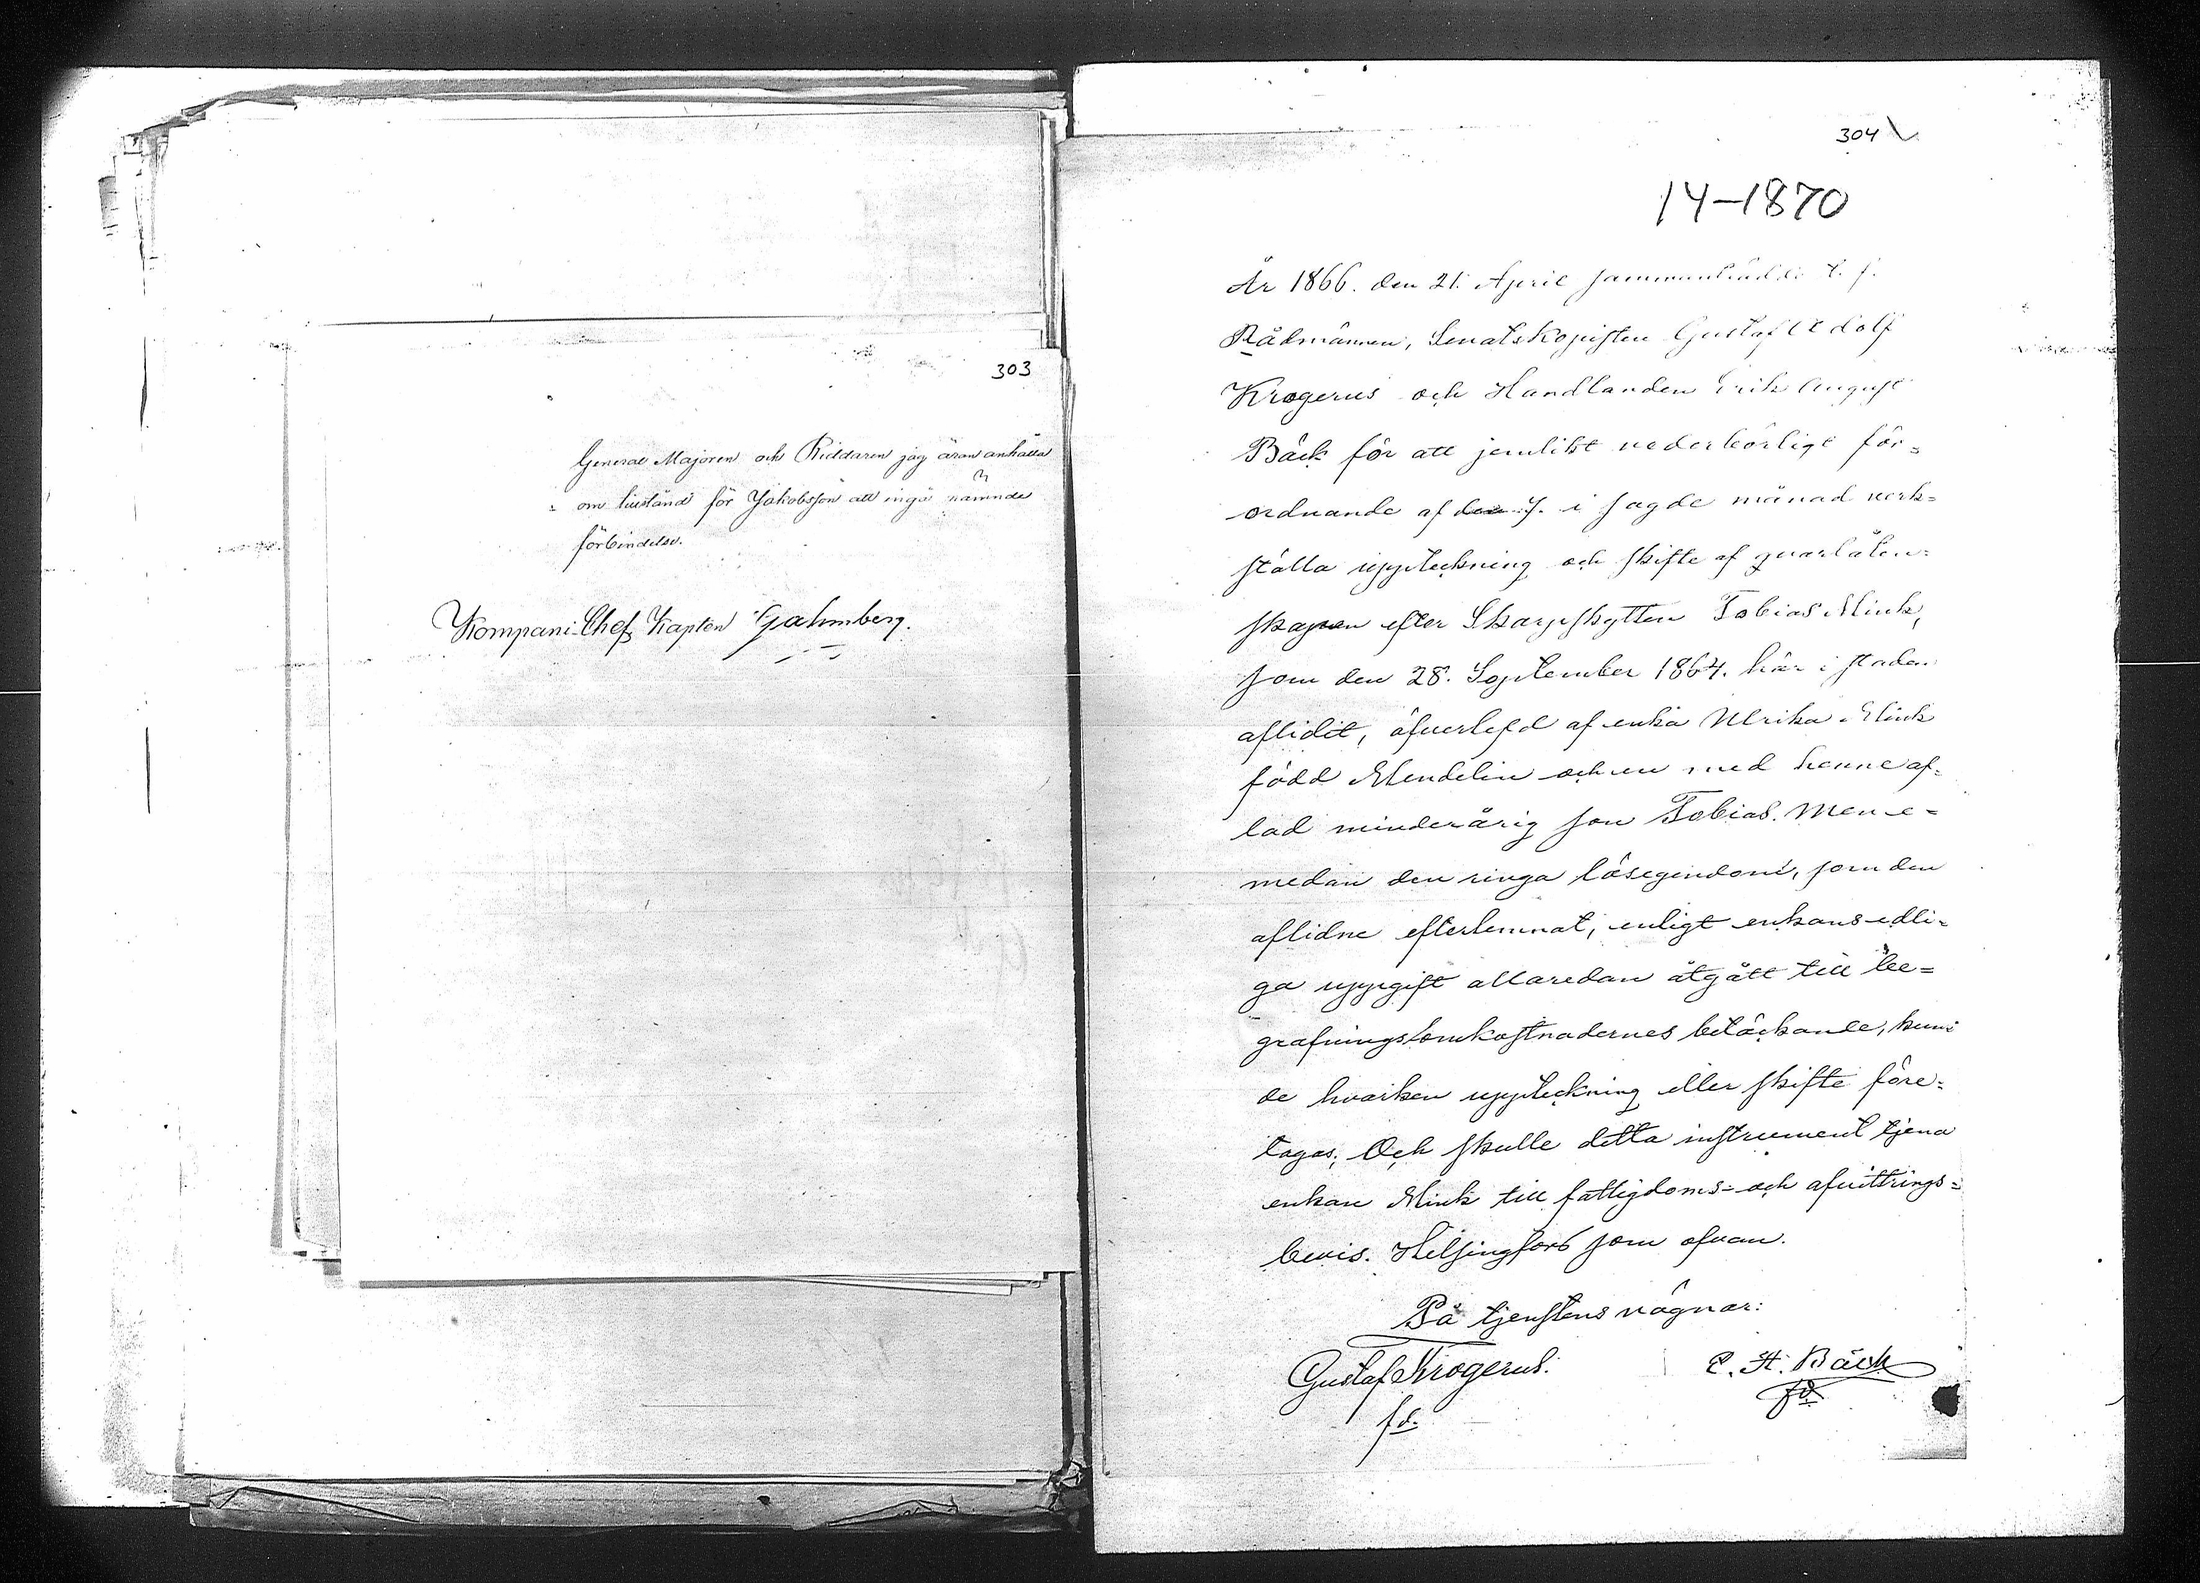 303
General Majoren och Riddaren jag äran anhålla
om tillstånd för Jakobsson att ingå nämnde
förbindelse.
Kompani Chef, Kapten Gahmberg.
304
14-1870
År 1866. den 21. April sammanträdde t. f.
Rådmännen, Senatskopisten Gustaf Adolf
Krogerus och Handlanden Erik August
Bäck för att jemlikt vederbörligt för=
ordnande af den 7. i sagde månad verk=
ställa uppteckning och skifte af qvarlåten=
skapen efter Skarpskytten Tobias Mink,
som den 28. September 1864. här i staden
aflidit, öfverlefd af enka Ulrika Mink
född Mendelin och en med henne af=
lad minderårig son Tobias. Men e=
medan den ringa lösegendom, som den
aflidne efterlemnat, enligt enkans edli=
ga uppgift allaredan åtgått till be=
grafningsomkostnadernes betäckande, kun=
de hvarken uppteckning eller skifte före=
tagas; Och skulle detta instrument tjena
enkan Mink till fattigdoms= och afvittrings=
bevis. Helsingfors som ofvan.
På tjenstens vägnar:
Gustaf Krogerus. E. A. Bäck